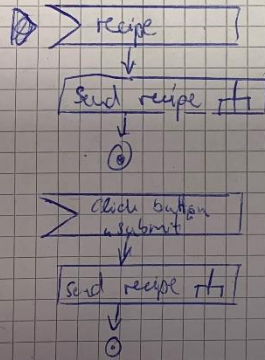 recipe
Send recipe
Click button
"submit"
Send recipe